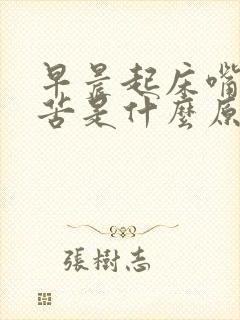 早晨起床嘴
苦是什麼原
張樹志